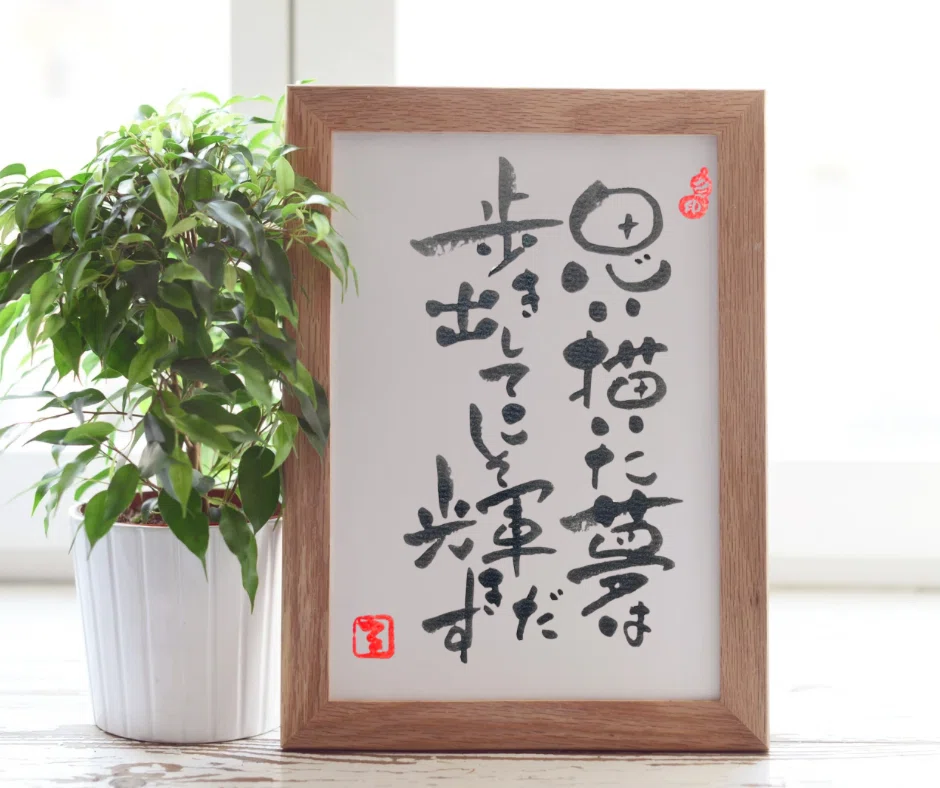 思い描いた夢は
歩き出してこそ輝きだす